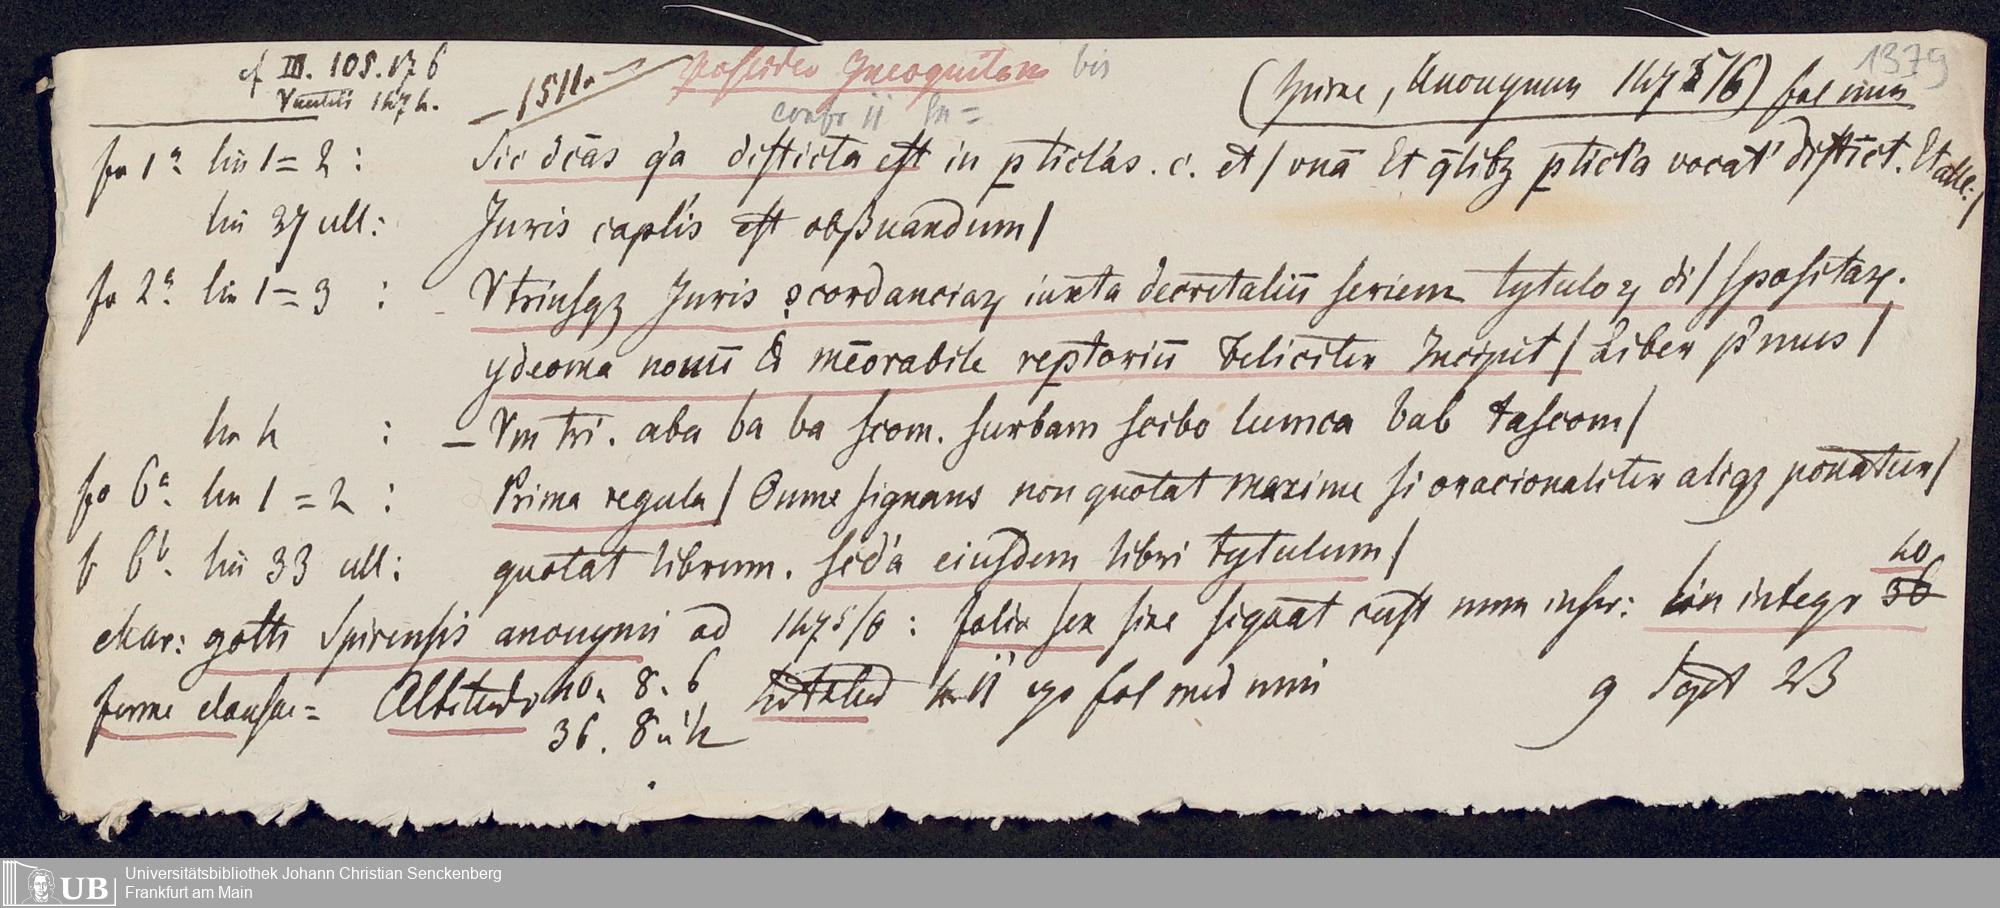 cf III. 105. 176
1474.
- 1511.
bis
1379
(Spirae, Anonymus 1475/6) fol min
confr II
fo 1ª lin 1=2 : Sic dcās q'a disticta est in pticlas. c. et / vnā Et q̄libȝ pticl'a vocat' distict.
lin 37 ult: Juris capl'is est obßuandum/
fo 2ª lin 1=3 : Vtriusqȝ Juris ꝯcordanciaꝝ iuxta decretaliū seriem tytuloꝝ di/spositaꝝ.
ydeoma nouū & mēorabile reptoriū feliciter Incipit/ Liber p'mus/
lin 4 : - Vm tri. aba ba ba scom. surbam scibo lumca bab tascom/
fo 6ª lin 1=2 : Prima regula/ Oume signans non quotat maxime si oracionaliter aliqȝ ponatur/
f 6b. lin 33 ult: quotat librum. sed'a eiusdem libri tytulum/
char: goth Spirensis anonymi ad 1475/6 : folia sex sine signat cust num inscr: lin integr 36 40
forme clausae= Altitudo 40. 8. 6
36. 8 u 4
II fol med mini 9 Sept 23
Universitätsbibliothek Johann Christian Senckenberg
Frankfurt am Main
UB